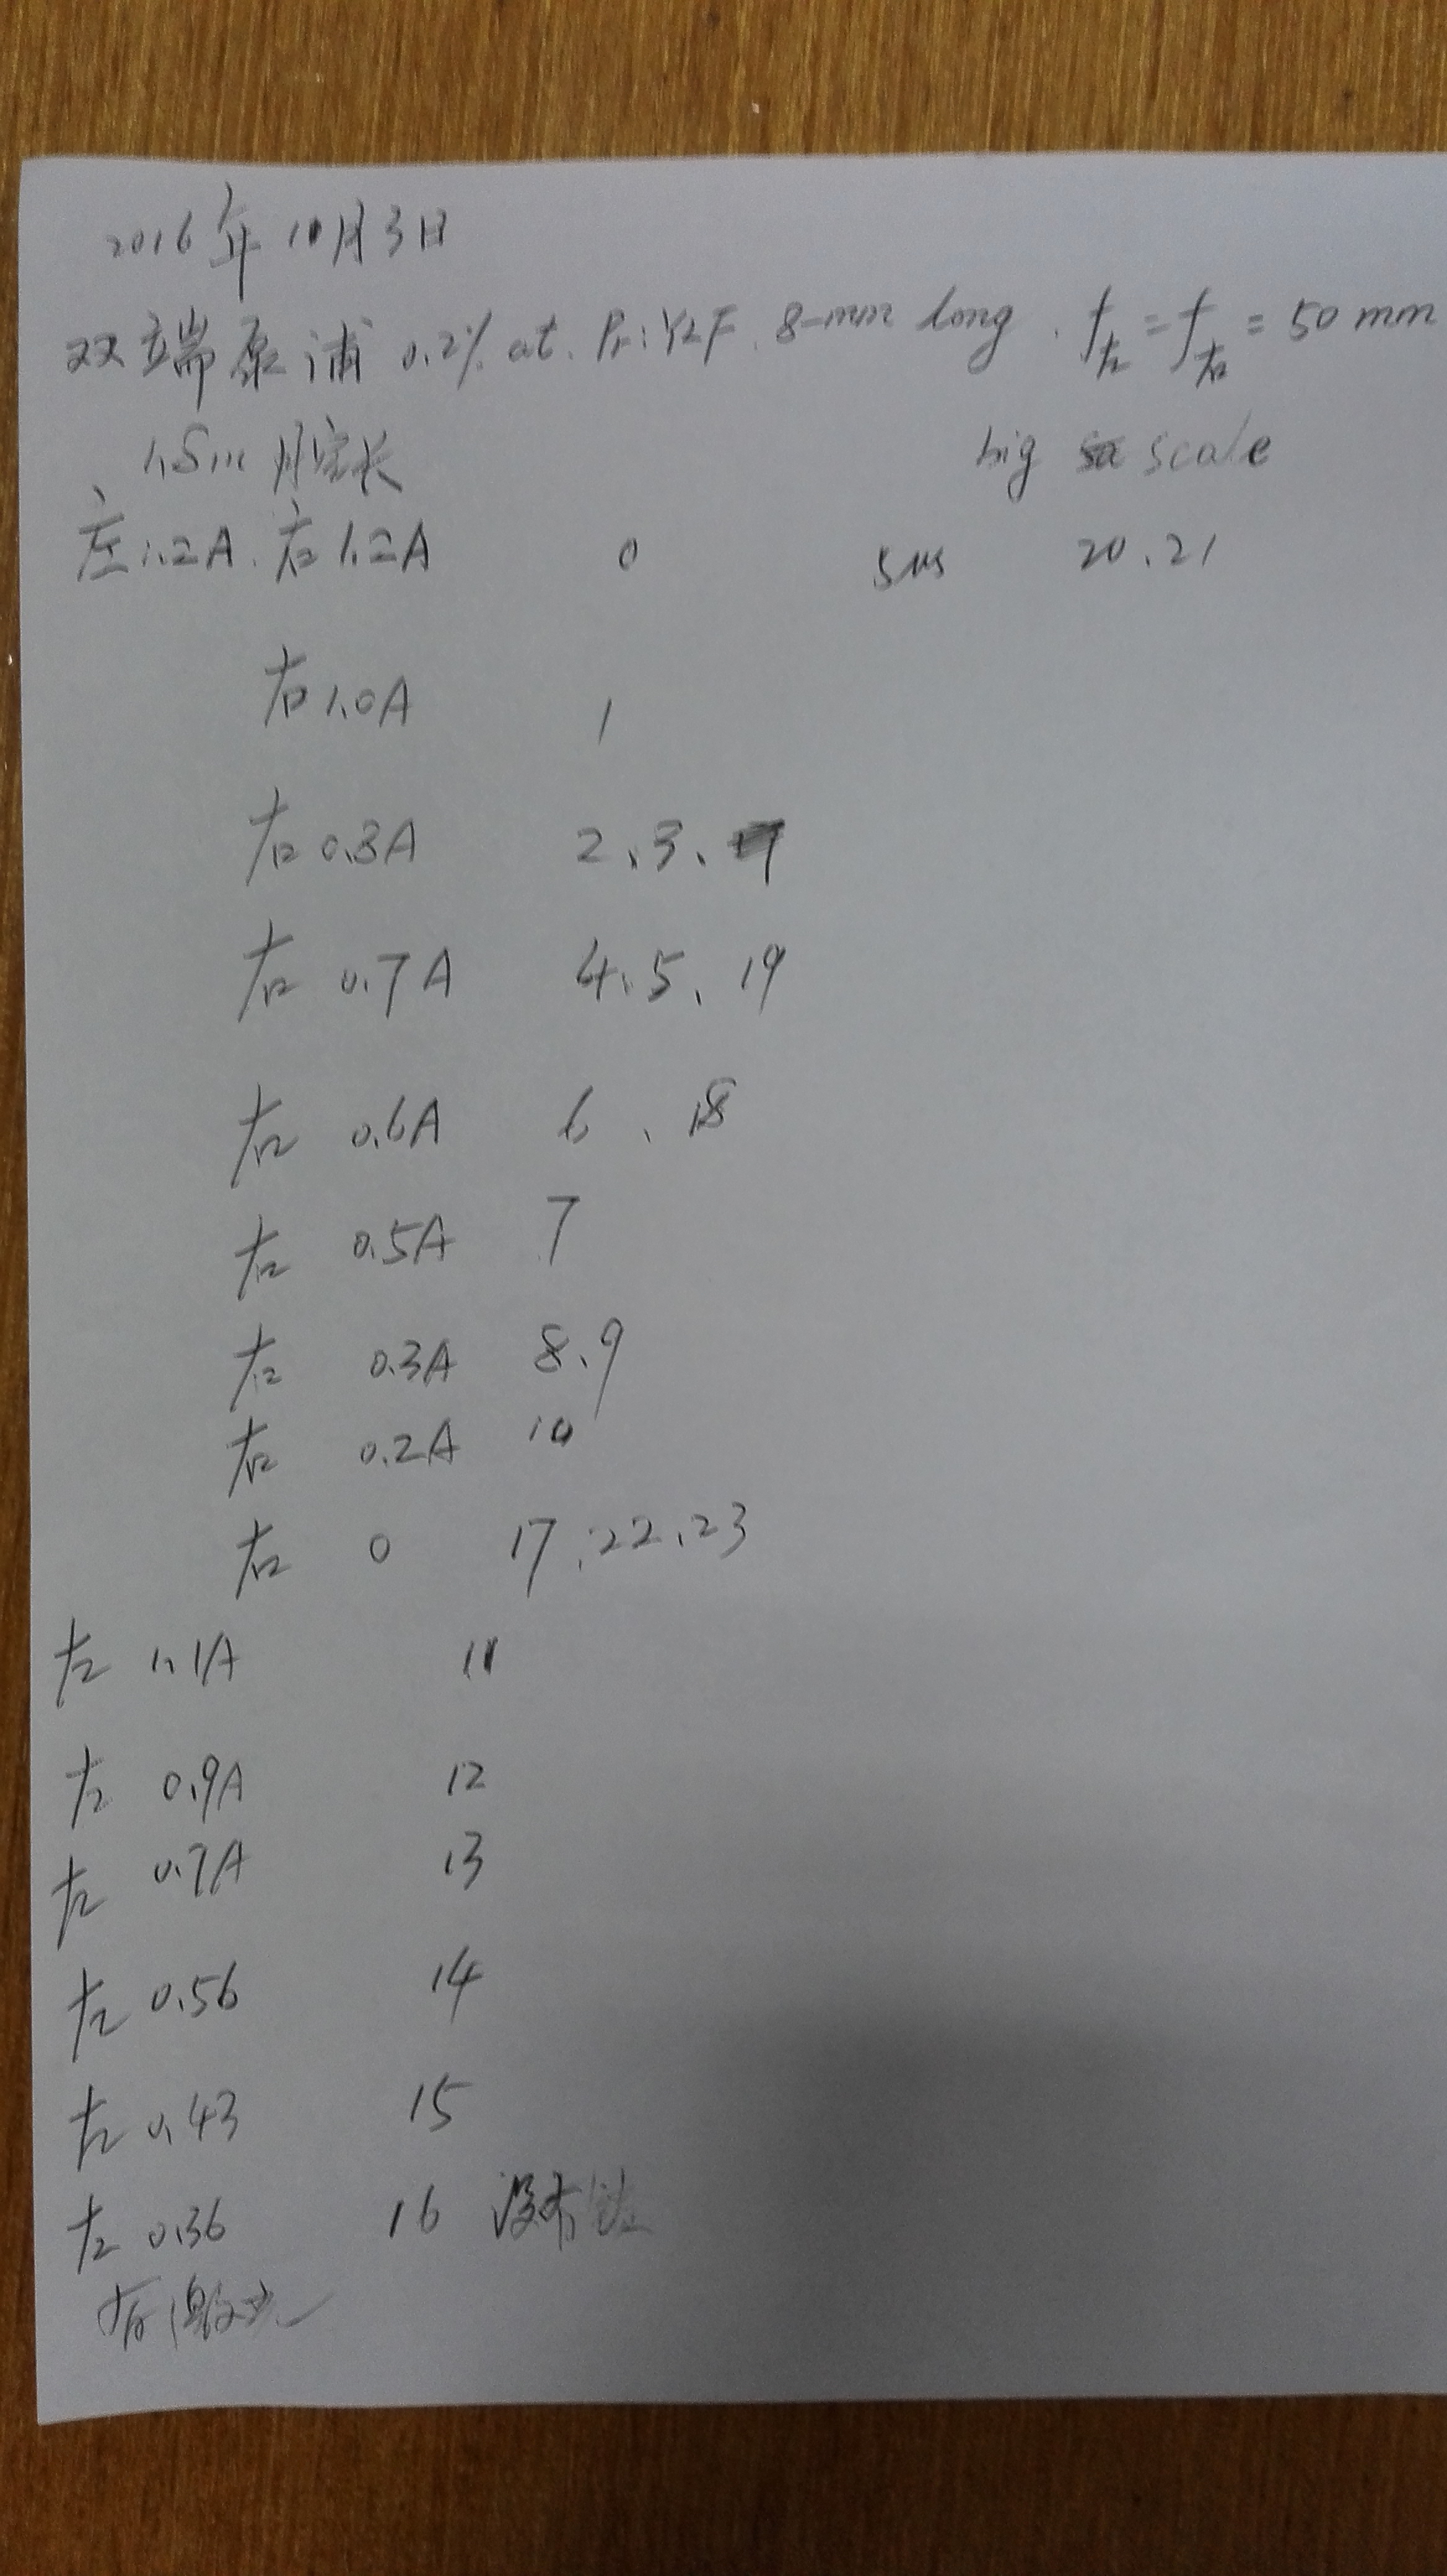 2016年10月3日
双端泵浦 0.2% at. Pr:YLF. 8-mm long. f左=f右=50mm
1.5m 腔长 big scale
左1.2A.右1.2A 0 5ms 20.21
右1.0A 1
右0.8A 2、3、
右 0.7A 4、5、19
右 0.6A 6、18
右 0.5A 7
右 0.3A 8、9
右 0.2A 10
右 0 17、22、23
左 1.1A 11
左 0.9A 12
左 0.7A 13
左 0.56 14
左 0.43 15
左 0.36 16 没有
有激光